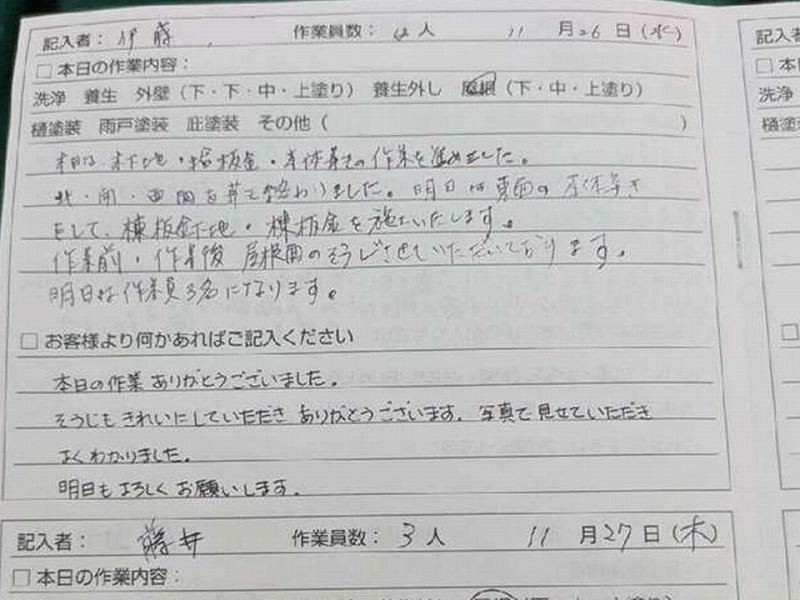 記入者： 伊藤 作業員数： 人 11 月 26 日 (水) 記入者
□ 本日の作業内容： □ 本
洗浄 養生 外壁（下・下・中・上塗り） 養生外し 屋根（下・中・上塗り） 洗浄
樋塗装 雨戸塗装 庇塗装 その他（ ） 樋塗
本日は 下地・板金・本体葺きの作業を進めました。
北・ 西面を葺き終わりました。明日は東面の本体葺き
をして、棟板金下地・棟板金を施工いたします。
作業前・作業後 屋根面のそうじさせていただいております。
明日は作業員3名になります。
□ お客様より何かあればご記入ください
本日の作業 ありがとうございました。
そうじも きれいにしていただき ありがとうございます. 写真で見せていただき
よくわかりました.
明日も よろしく お願いします.
記入者： 藤井 作業員数： 3 人 11 月 27 日 (木)
□ 本日の作業内容：